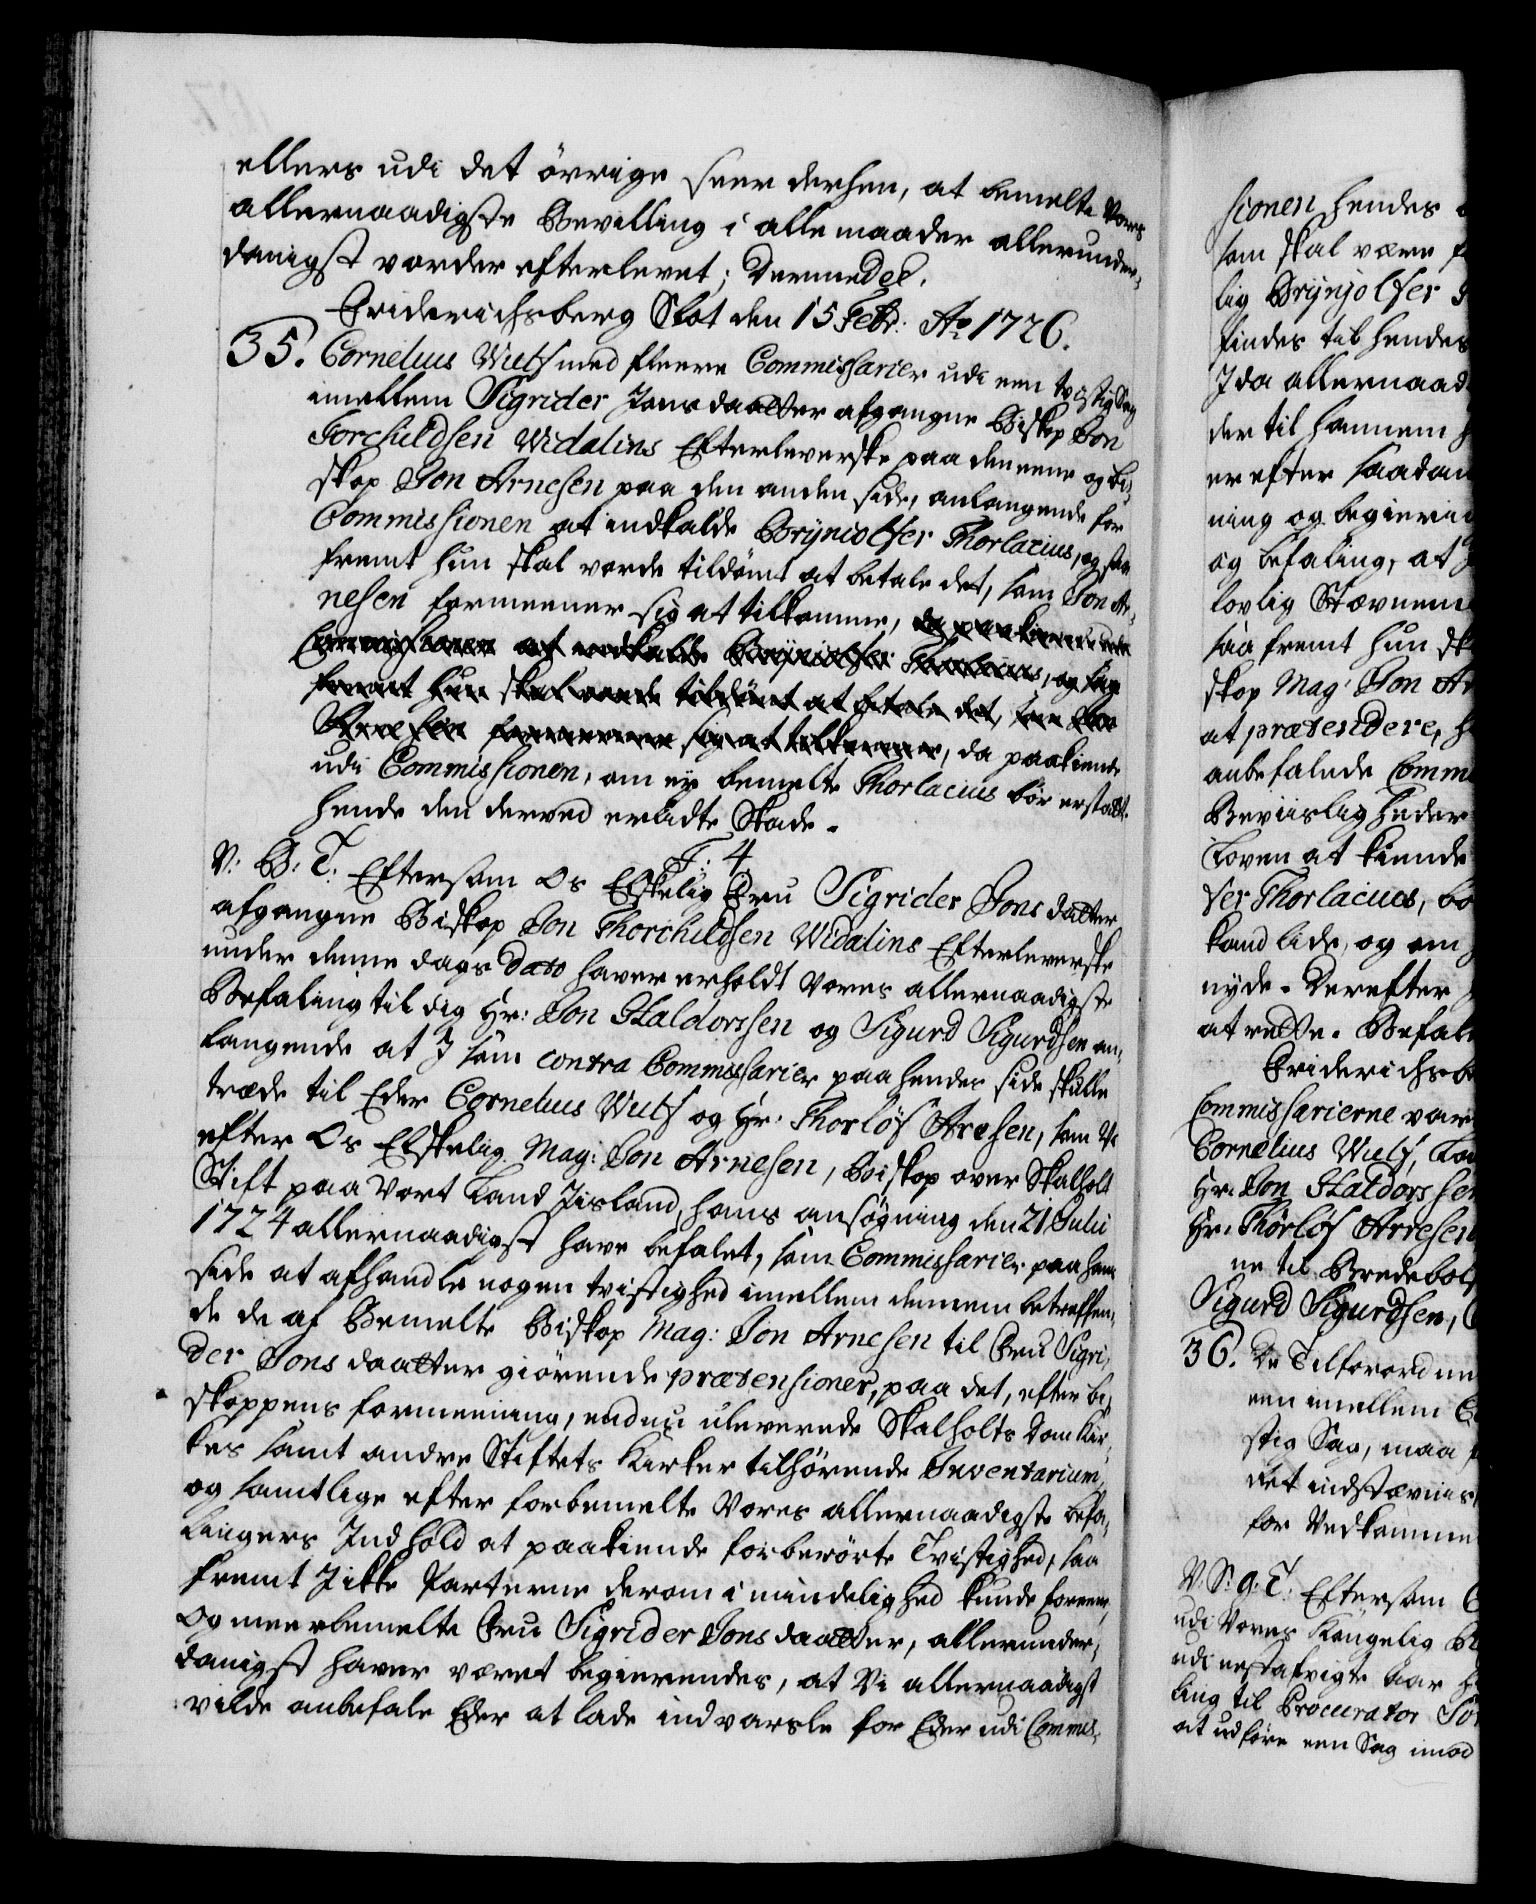 ellers udi det övrige seer derhen, at bemelte Vores
allernaadigste Bevilling i alle maader allerunder,
danigst vorder efterlevet; Dermed etc.
Friderichsberg Slot den 15 Febr: Ao 1726.
35. Cornelius Wulf med fleere Commissarier udi een tvistig Sag
imellem Sigrider Jonsdaatter afgangne Biskop Jon
Torchildsen Widalins Efterleverske paa den eene og Bi,
skop Jon Arnesen paa den anden side, anlangende for
Commissionen at indkalde Brÿniolfer Thorlacius, og saa
fremt hun skal vorde tildömt at betale det, som Jon Ar,
nesen formeener sig at tilkomme, da paakiende udi
Commissionen at indkalde Brÿniolfer Thorlacius, og saa
fremt hun skal vorde tildömt at betale det, som Jon
Arnesen formeener sig at tilkomme, da paakiende
udi Commissionen, om eÿ bemelte Thorlacius bör erstatte
hende den derved erlidte Skade.
F: 4
V: B: T: Eftersom Os Elskelig Fru Sigrider Jonsdatter
afgangne Biskop Jon Thorchildsen Widalins Efterleverske
under denne dags Dato haver erholdt Vores allernaadigste
Befaling til dig Hr: Jon Haldorssen og Sigurd Sigurdsen an,
langende at I som contra Commissarier paa hendes side skulle
træde til Eder Cornelius Wulf og Hr: Thorlöf Aresen, som Vi
efter Os Elskelig Mag: Jon Arnesen, Biskop over Skalholt
Stift paa Vort Land Iisland, hans ansögning den 21 Julii
1724 allernaadigst have befalet, som Commissarier paa hans
side at afhandle nogen tvistighed imellem dennem betreffen,
de de af Bemelte Biskop Mag: Jon Arnesen til Fru Sigri,
der Jonsdaatter giörende prætensioner, paa det, efter bi,
skoppens formeening, endnu uleverede Skalholts Dom Kir,
kes samt andre Stiftets Kirker tilhörende Inventarium,
og samtlige efter forbemelte Vores allernaadigste befa,
linges Indhold at paakiende forberörte Tvistighed, saa
fremt I ikke Parterne derom i mindelighed kunde foreene,
Og meerbemelte Fru Sigrider Jonsdaatter, allerunder,
danigst haver været begierendes, at Vi allernaadigst
vilde anbefale Eder at lade indvarsle for Eder udi Commis,
sionen hendes
som skal være
lig Brÿnjolfer
findes til hendes
I da allernaad
der til hannem
er efter saadan
ning og begierin
og befaling, at
lovlig Stævnem
saa fremt hun sk
skop Mag: Jon Ar
at prætendere, h
anbefalede Comm
Beviislig heder
Loven at kiende
fer Thorlacius, bö
kand lide, og om
nyde. Derefter
at rette. Befal
Friderichsbe
Commissarierne var
Cornelius Wulf, La
Hr: Jon Haldorssen
Hr: Thorlöf Arresen
ne til Bredebols
Sigurd Sigurdsen,
36. De Tilforordne
een imellem
stig Sag, maa
det indstævnis
for Vedkomme
V: S: G: T: Eftersom
udi Vores Kongelig
udi nestafvigte Aar
ling til Procurator
at udföre een Sag imod